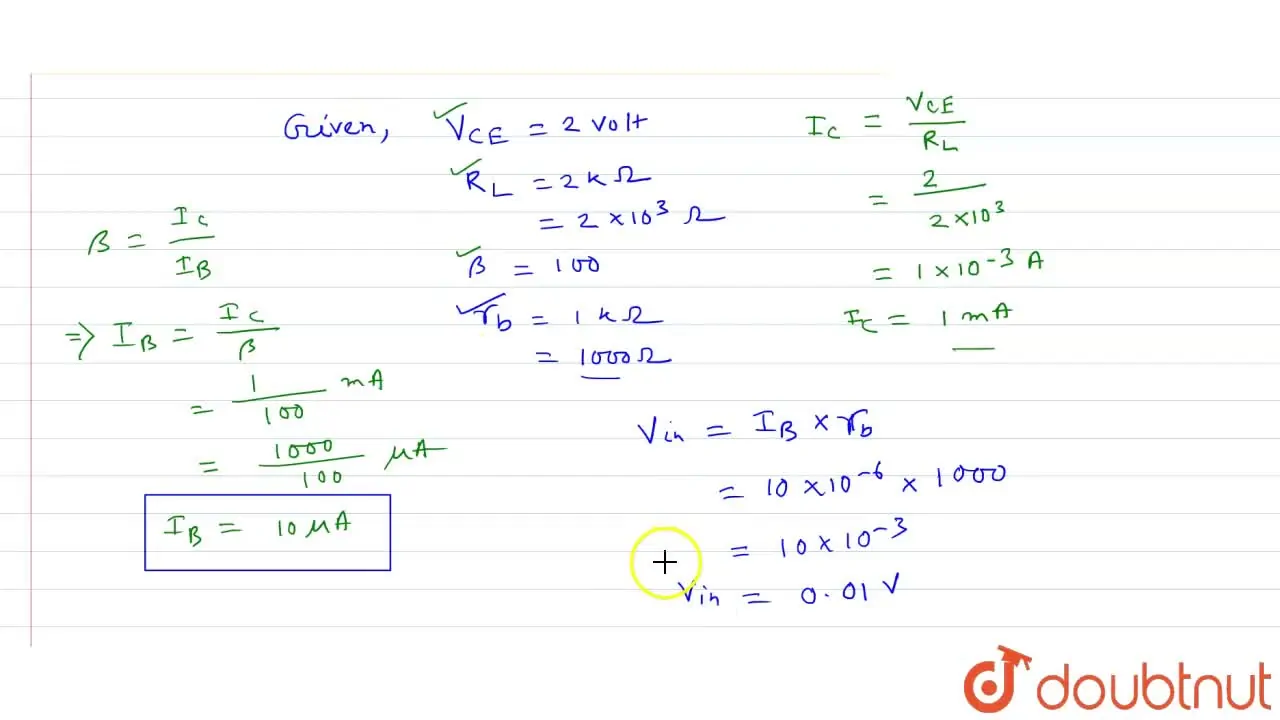 Given, V_CE = 2 volt
R_L = 2 k Ω
= 2 × 10³ Ω
β = 100
r_b = 1 k Ω
= 1000 Ω
I_C = V_CE / R_L
= 2 / 2×10³
= 1 × 10⁻³ A
I_C = 1 mA
β = I_C / I_B
⇒ I_B = I_C / β
= 1 / 100 mA
= 1000 / 100 μA
I_B = 10 μA
V_in = I_B × r_b
= 10 × 10⁻⁶ × 1000
= 10 × 10⁻³
V_in = 0.01 V
doubtnut